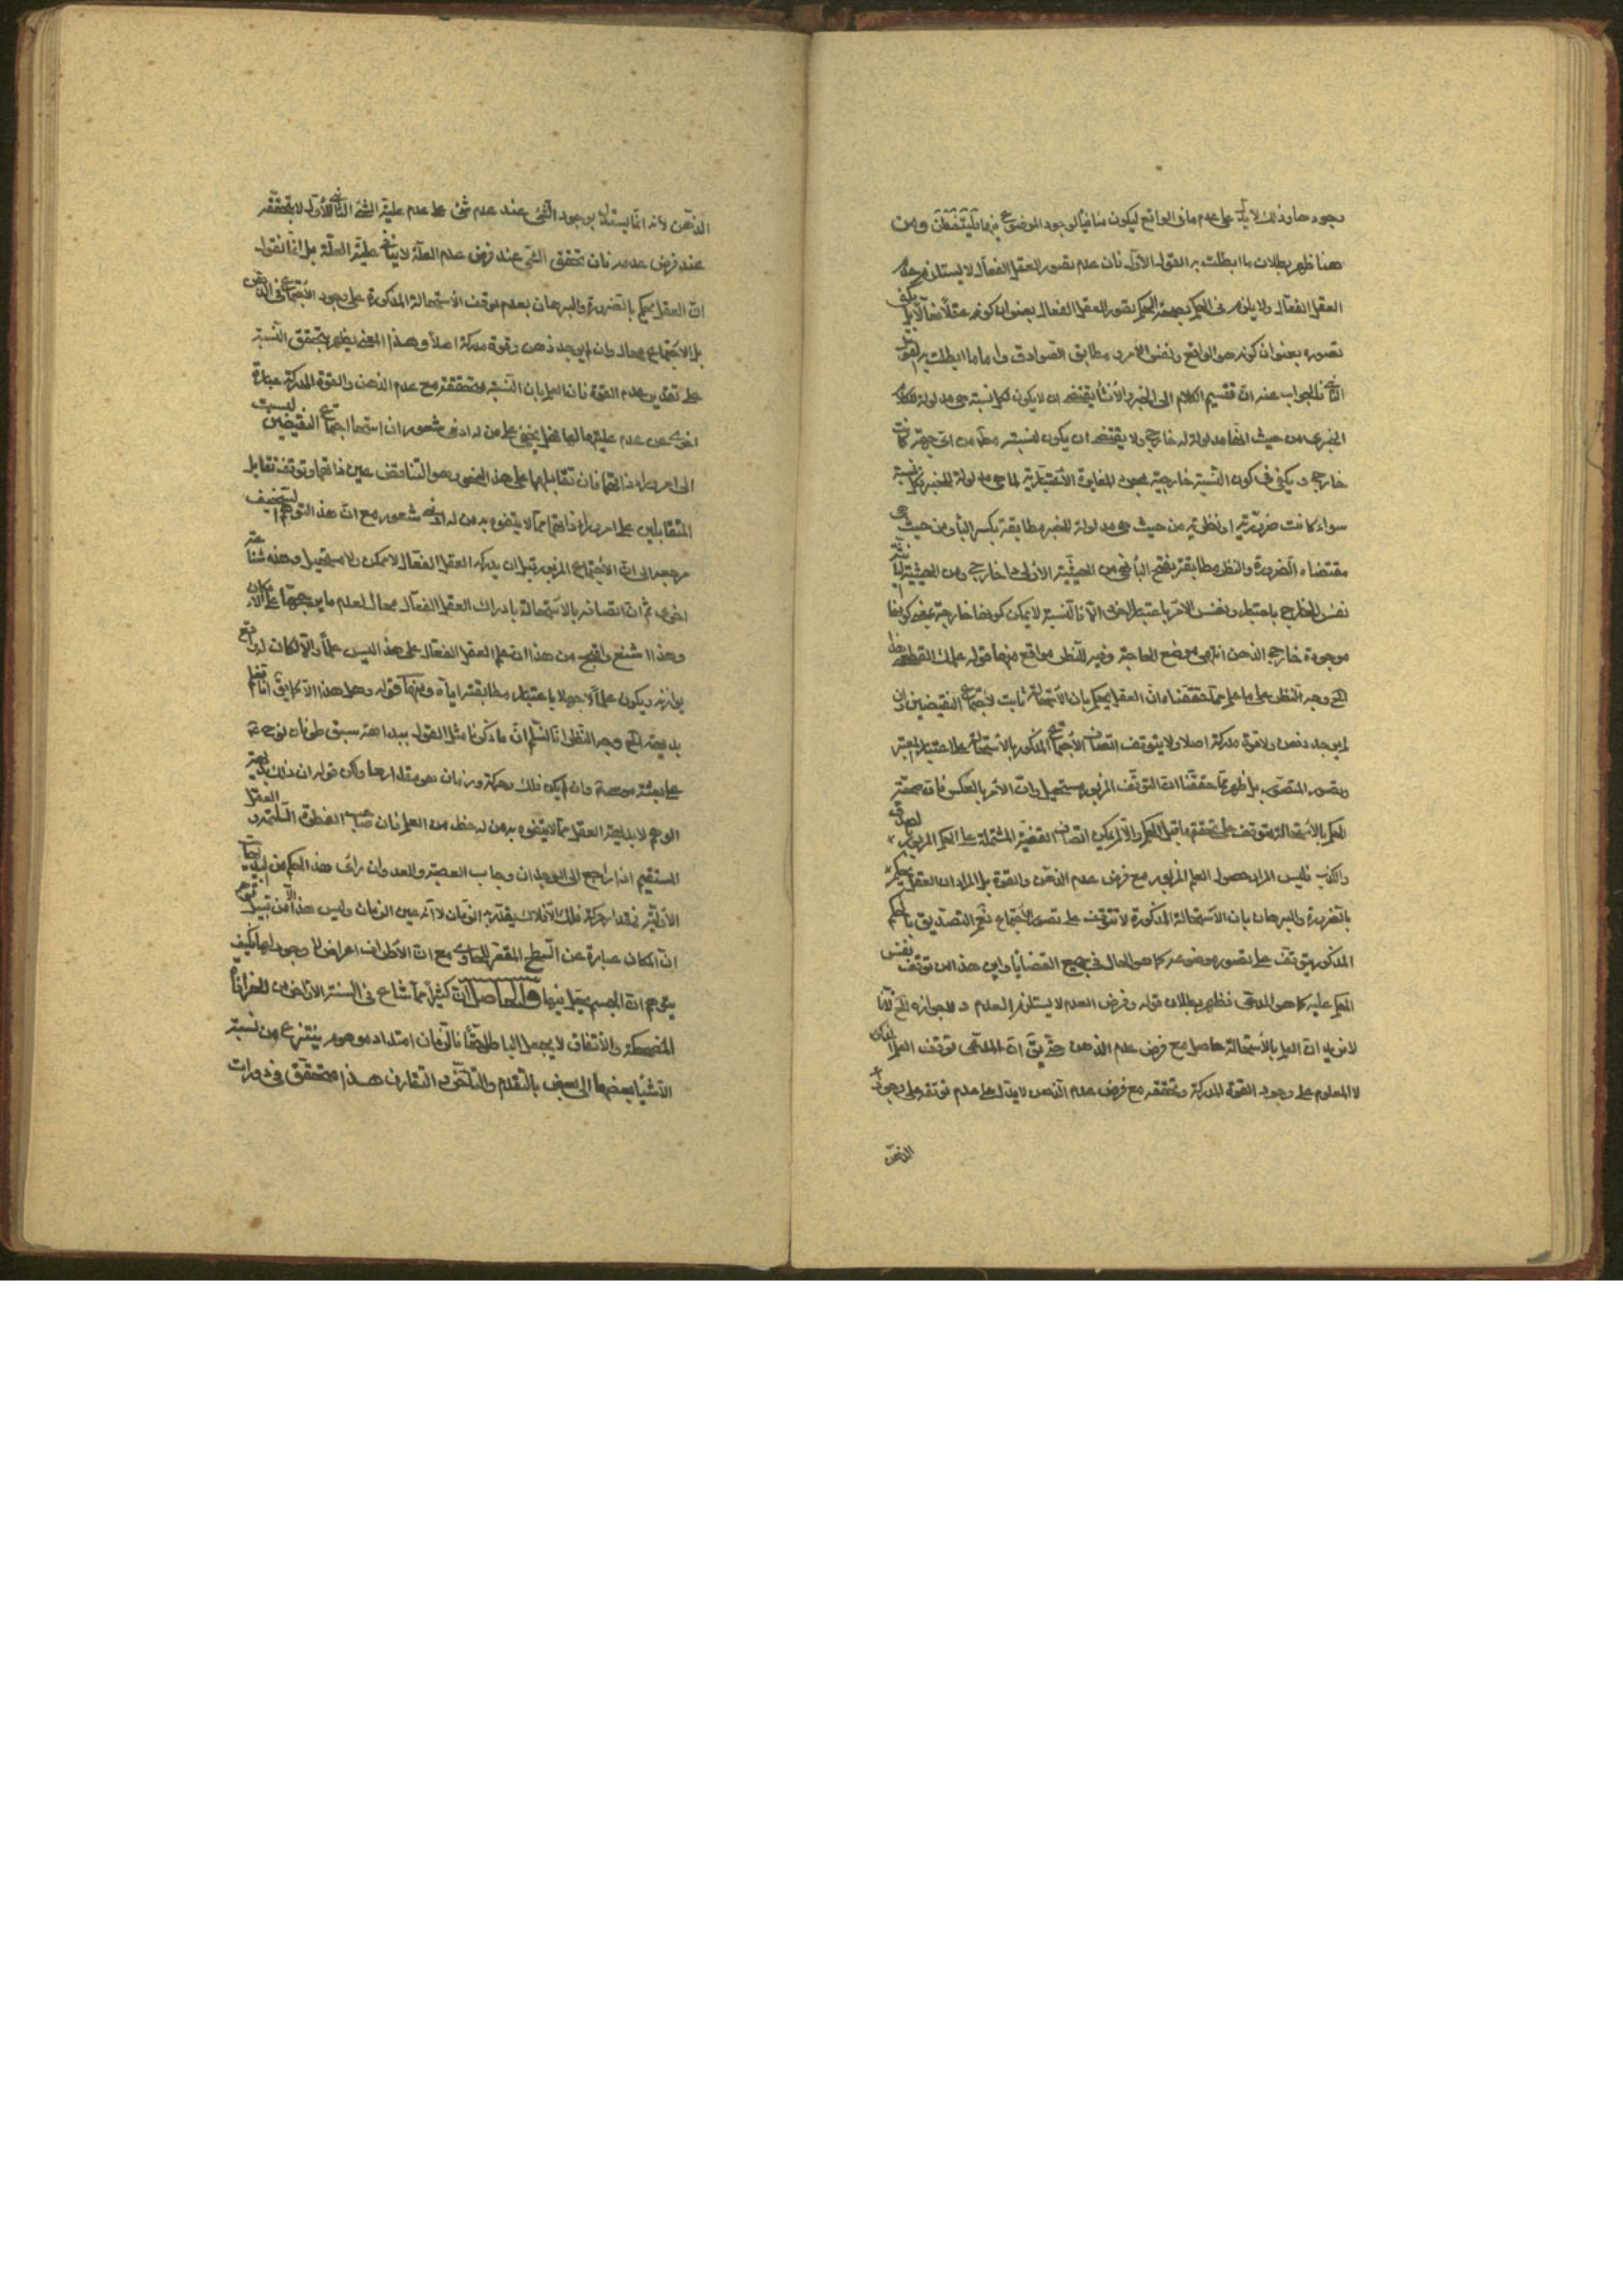 وجودها وذلك لا يدل على عدم مافى الواقع ليكون منافياً لوجود الموضوع فيهما ومن
هنا ظهر بطلان ما ابطلت به القول الاول فان عدم تصور العقل الفعال لا يستلزم عدم
العقل الفعال ولا يلزم فى الحكم بصحة الحكم تصور العقل الفعال بعنوان كونه عقلاً فعالاً بل يكفى
تصوره بعنوان كونه هو الواقع ونفس الامر ومطابق الصوادق واما ما ابطلت به القول
الثانى فالجواب عنه ان تقسيم الكلام الى الخبر والانشا يقتضى ان لا يكون لكل نسبة هى مدلولة للكلام
الخبرى من حيث انها مدلولة له خارج ولا يقتضى ان يكون لنسبته مط من اى جهة كانت
خارج ويكفى فى كون النسبة خارجية مجرد المغايرة الاعتبارية لما هى مدلولة للخبر فالنسبة
سواء كانت ضرورية او نظرية من حيث هى مدلولة للخبر مطابقة بكسر الباء ومن حيث هى
مقتضاء الضرورة والنظر مطابقة بفتح الباء فهى من الحيثية الاولى لها خارج ومن الحيثية الثانية
نفس الخارج باعتبار ونفس الامر باعتبار اخر فالنسبة لا يمكن كونها خارجية بمعنى كونها
موجودة خارج الذهن انتهى موضع الحاجة وفيه للنظر مواقع منها قوله
الخ وجه النظر على ما علم مما حققناه ان العقل يحكم بان الاستحالة ثابت لاجتماع النقيضين وان
لم يوجد ذهن ولا قوة مدركة اصلا ولا يتوقف اتصاف الاجتماع المذكور بالاستحالة على اعتبار المعتبر
وتصور المتصور بل ظهر مما حققنا ان التوقف المزبور مستحيل وان الامر بالعكس فان صحة
الحكم بالاستحالة متوقف على تحققها قبل الحكم والا لم يكن اتصاف القضية المشتملة على الحكم المزبور بالصدق
والكذب فليس المراد حصول العلم المزبور مع فرض عدم الذهن والقوة بل المراد ان العقل يحكم
بالضرورة والبرهان بان الاستحالة المذكورة لا تتوقف على تصور الاجتماع نعم التصديق بالحكم
المذكور يتوقف على تصور موضوعه كما هو الحال فى جميع القضايا واين هذا من توقف نفس
الحكم عليه كما هو المدعى فظهر بطلان قوله وفرض العدم لا يستلزم العدم لجوازه الخ لانا
لا نريد ان العلم بالاستحالة حاصل مع فرض عدم الذهن حتى يق ان المدعى توقف العلم
لا المعلوم على وجود القوة المدركة وتحققه مع فرض عدم الذهن لا يدل على عدم توقفه على وجود
الذهن
الذهن لانه انما يستدل بوجود الشئ عند عدم شئ على عدم علية الشئ الثانى للاول لا بتحققه
عند فرض عدمه فان تحقق الشئ عند فرض عدم العلة لا ينافى علية العلة بل انما نقول
ان العقل يحكم بالضرورة والبرهان بعدم توقف الاستحالة المذكورة على وجود الاجتماع فى الذهن
بل الاجتماع محال وان لم يوجد ذهن وقوة مدركة اصلاً وهذا المعنى يظهر بتحقق النسبة
على تقدير عدم القوة فان العلم بان النسبة متحققة مع عدم الذهن والقوة المدركة عبارة
اخرى عن عدم عليتهما لها فهل يخفى على من له ادنى شعور ان استحالة اجتماع النقيضين ليست
الى امر وراء ذاتهما فان تقابلهما على هذا النحو وهو التناقض عين ذاتهما وتوقف تقابل
المتقابلين على امر وراء ذاتهما مما لا يتفوه به من له ادنى شعور مع ان هذا التوهم السخيف
مرجعه الى ان الاجتماع المزبور قبل ان يدركه العقل الفعال لا ممكن ولا مستحيل وهذه شناعة
اخرى ثم ان اتصافه بالاستحالة بادراك العقل الفعال محال لعدم ما يرجحها على الامكان
وهذا اشنع واقبح من هذا ان علم العقل الفعال على هذا ليس علماً والا لكان له واقع
يوازنه ويكون علماً لا جهلا باعتبار مطابقته اياه ومنها قوله وهل هذا الا كما يق انا نعلم
بديهة الخ وجه النظر انا لا نسلم ان ما ذكرنا مثل القول ببداهة سبق طوفان نوح ع
على بعثة موسى ع وان لم يكن فلك وحركة وزمان هو مقدارها ولكن قوله ان ذلك بديهة
الوهم لا بديهة العقل مما لا يتفوه به من له حظ من العلم فان صاحب الفطرة السليمة والعقل
المستقيم اذا راجع الى الوجدان وجانب العصبية والعدوان راى هذا الحكم من البديهيات
الاولية فمقدار حركة فلك الافلاك يقدر به الزمان لا انه عين الزمان وليس هذا الا من قبيل توهم
ان المكان عبارة عن السطح المقعر الحاوى مع ان الاطراف اعراض لا وجود لها فكيف
يتوهم ان الجسم يحل فيها والحاصل ان كثيراً مما شاع فى السنة الاراذل من الخرافات
المضحكة والاتفاق لا يجعل الباطل حقاً فالزمان امتداد موهوم ينتزع من نسبة
الاشياء بعضها الى بعض بالتقدم والتاخر والتقارن هذا متحقق فى دورات